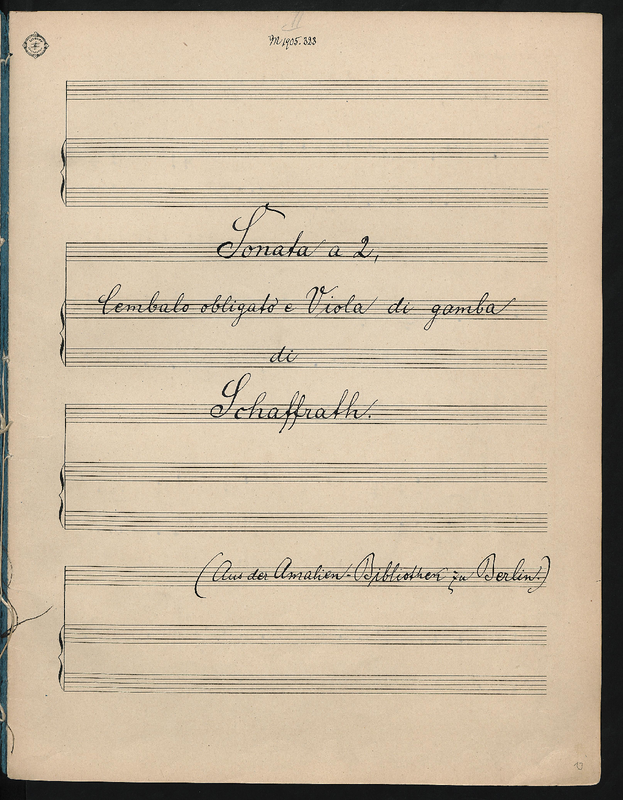 M 1905.323
Sonata a 2,
Cembalo obligato e Viola di gamba
di
Schaffrath.
(Aus der Amalien-Bibliothek zu Berlin.)